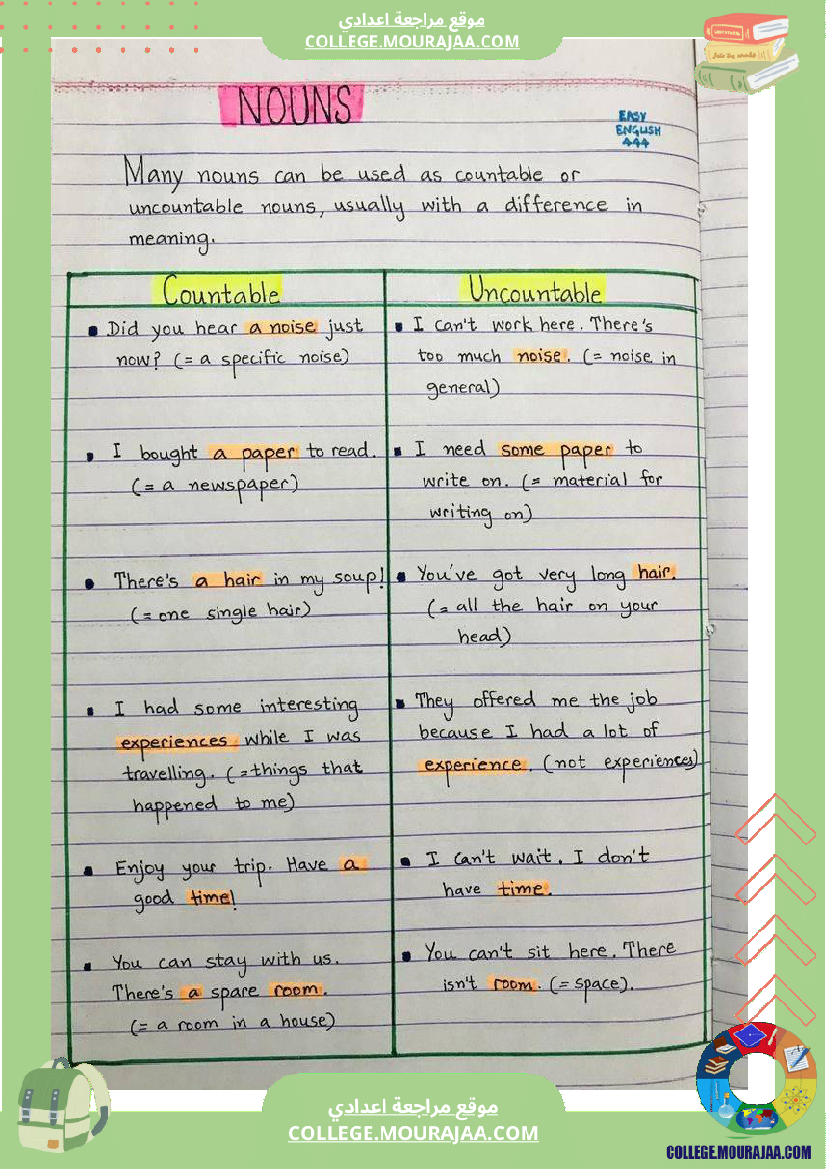 موقع مراجعة اعدادي
COLLEGE.MOURAJAA.COM
NOUNS
EASY
ENGLISH
444
Many nouns can be used as countable or
uncountable nouns, usually with a difference in
meaning.
Countable
Did you hear a noise just
now? (= a specific noise)
I bought a paper to read.
(= a newspaper)
There's a hair in my soup!
(= one single hair)
I had some interesting
experiences while I was
travelling. (= things that
happened to me)
Enjoy your trip. Have a
good time!
You can stay with us.
There's a spare room.
(= a room in a house)
Uncountable
I can't work here. There's
too much noise. (= noise in
general)
I need some paper to
write on. (= material for
writing on)
You've got very long hair.
(= all the hair on your
head)
They offered me the job
because I had a lot of
experience. (not experiences)
I can't wait. I don't
have time.
You can't sit here. There
isn't room. (= space).
موقع مراجعة اعدادي
COLLEGE.MOURAJAA.COM
COLLEGE.MOURAJAA.COM